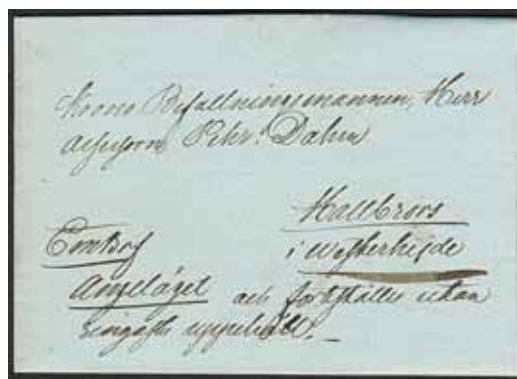 Krono Befallningsmannen, Herr
Pehr Dahm
Hallbroos
i Westerhejde
Angeläget och fortställes utan
ringaste uppehåll.